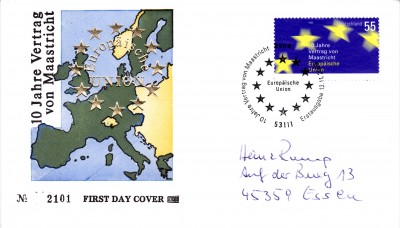 10 Jahre Vertrag
von Maastricht
Europäische
Union
№ 2101 FIRST DAY COVER
Deutschland 55
10 Jahre
Vertrag von
Maastricht
Europäische
Union
10 Jahre Vertrag von Maastricht
Europäische
Union
Erstausgabe
53111
Heinz Rump
Auf der Burg 13
45359 Essen